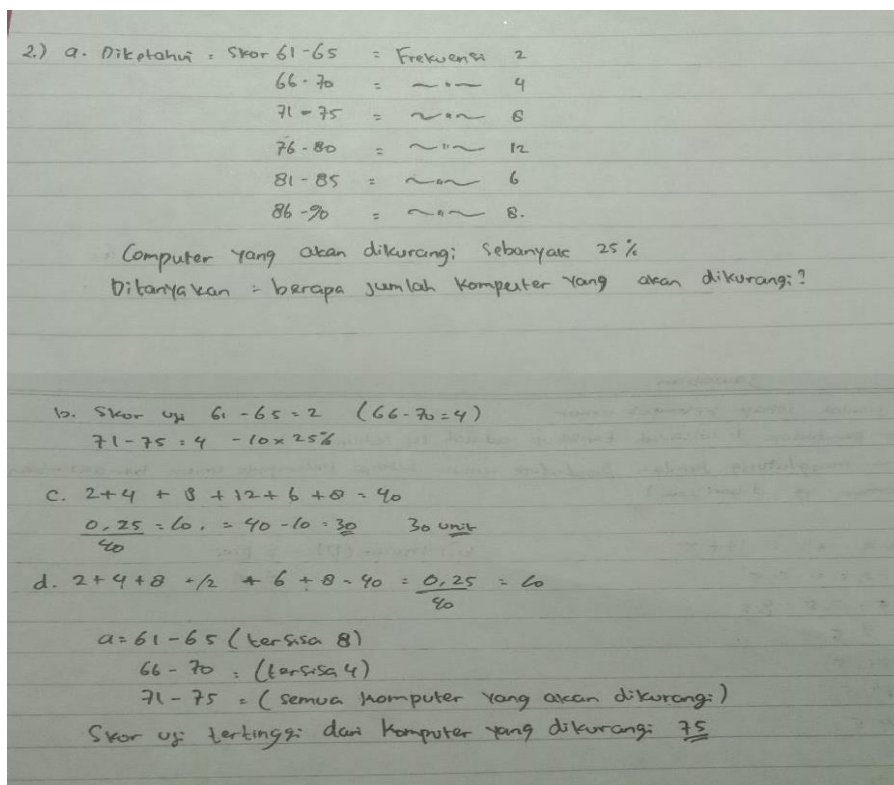 2.) a. Diketahui = Skor 61-65 = Frekuensi 2
66-70 = ~"~ 4
71-75 = ~"~ 8
76-80 = ~"~ 12
81-85 = ~"~ 6
86-90 = ~"~ 8.
Computer yang akan dikurangi sebanyak 25%
Ditanyakan = berapa jumlah komputer yang akan dikurangi?
b. Skor uji 61-65 = 2 (66-70 = 4)
71-75 = 4 - 10 x 25%
c. 2+4 + 8 + 12 + 6 + 8 = 40
0,25/40 = 10. = 40-10 = 30 30 unit
d. 2+4+8 +12 + 6 + 8 = 40 = 0,25/40 = 10
a = 61-65 (tersisa 8)
66-70 = (tersisa 4)
71-75 = (semua komputer yang akan dikurangi)
Skor uji tertinggi dari komputer yang dikurangi 75